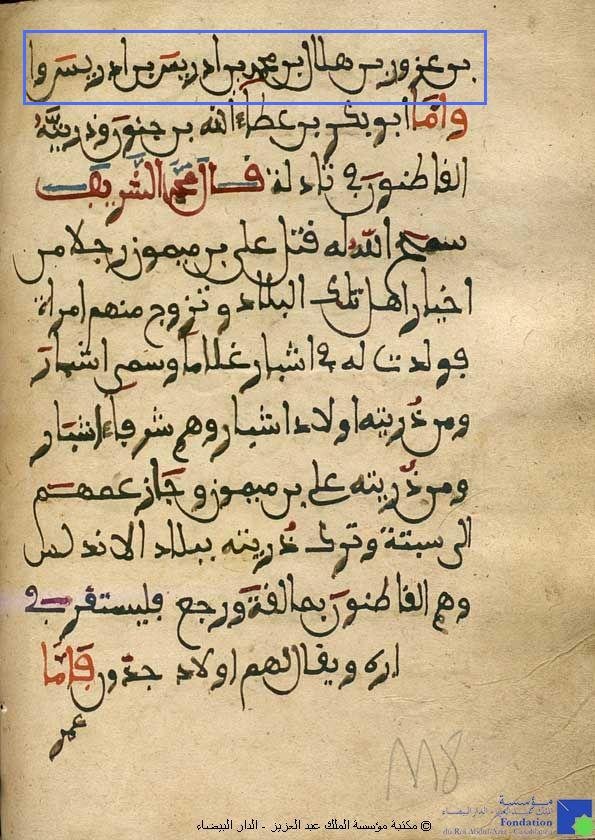 بن عزوز بن هلال بن محمد بن ادريس بن ادريس وا
واما ابو بكر بن عطاء الله بن جنون وذريته
القاطنون في تادلة قال محمد الشريف
سمح الله له قتل علي بن ميمون رجلا من
اخيار اهل تلك البلاد وتزوج منهم امراة
فولدت له في اشبار غلاما وسمى اشبار
ومن ذريته اولاد اشبار وهم شرفاء اشبار
ومن ذريته علي بن ميمون وجاز عمهم
الى سبتة وترك ذريته ببلاد الاندلس
وهم القاطنون بمالقة ورجع فليستقر في
اره ويقال لهم اولاد جدون فاما
عمر
118
مؤسسة
الملك عبد العزيز - الدار البيضاء
Fondation
du Roi Abdul-Aziz - Casablanca
© مكتبة مؤسسة الملك عبد العزيز - الدار البيضاء